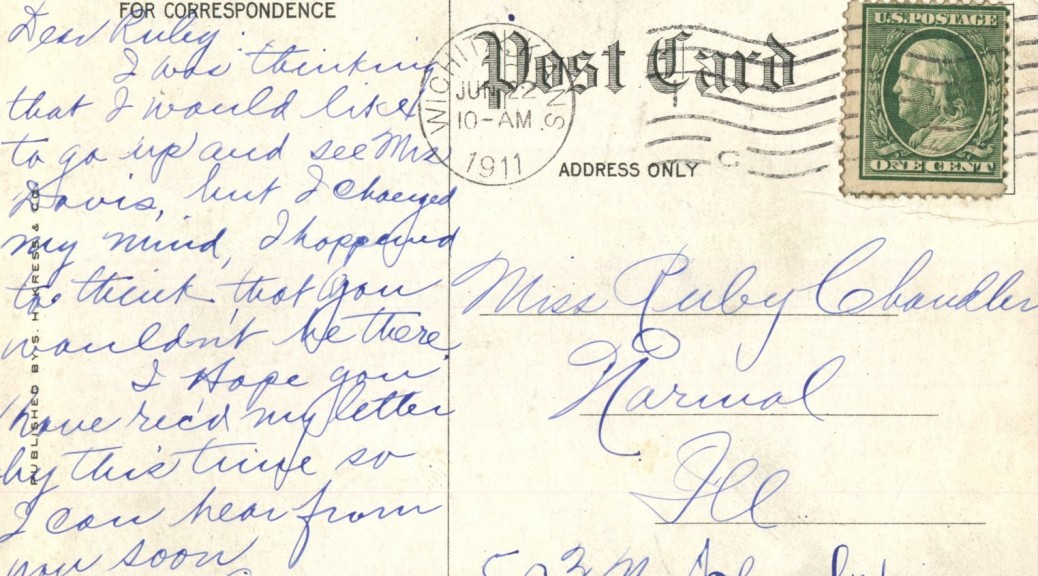 FOR CORRESPONDENCE
Dear Ruby:
I was thinking
that I would like
to go up and see Mrs
Davis, but I changed
my mind, I happened
to think that you
wouldn't be there.
I Hope you
have rec'd my letter
by this time so
I can hear from
you soon
PUBLISHED BY S. H. KRESS & CO.
Post Card
WICHITA KANS.
JUN 22
10-AM
1911
U.S. POSTAGE
ONE CENT
ADDRESS ONLY
Miss Ruby Chandler
Normal
Ill